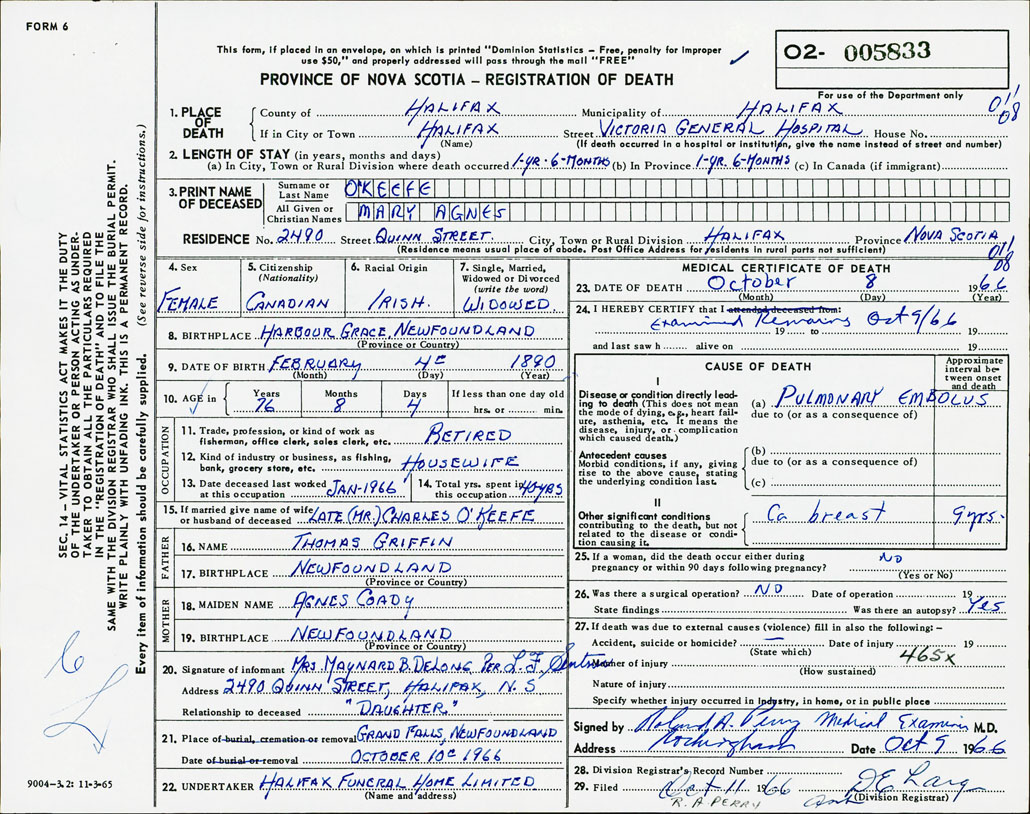 FORM 6
This form, if placed in an envelope, on which is printed "Dominion Statistics – Free, penalty for improper
use $50," and properly addressed will pass through the mail "FREE"
PROVINCE OF NOVA SCOTIA – REGISTRATION OF DEATH
O2- 005833
For use of the Department only
011
08
1. PLACE OF DEATH
County of HALIFAX Municipality of HALIFAX
If in City or Town HALIFAX Street VICTORIA GENERAL HOSPITAL House No.
(Name) (If death occurred in a hospital or institution, give the name instead of street and number)
2. LENGTH OF STAY (in years, months and days)
(a) In City, Town or Rural Division where death occurred 1-YR. 6-MONTHS (b) In Province 1-YR. 6-MONTHS (c) In Canada (if immigrant)
3. PRINT NAME OF DECEASED
Surname or Last Name O'KEEFE
All Given or Christian Names MARY AGNES
RESIDENCE No. 2490 Street QUINN STREET. City, Town or Rural Division HALIFAX Province NOVA SCOTIA
(Residence means usual place of abode. Post Office Address for residents in rural parts not sufficient)
011
08
4. Sex FEMALE
5. Citizenship (Nationality) CANADIAN
6. Racial Origin IRISH.
7. Single, Married, Widowed or Divorced (write the word) WIDOWED
8. BIRTHPLACE HARBOUR GRACE, NEWFOUNDLAND
(Province or Country)
9. DATE OF BIRTH FEBRUARY 4th 1890
(Month) (Day) (Year)
10. AGE in Years 76 Months 8 Days 4 If less than one day old hrs. or min.
OCCUPATION
11. Trade, profession, or kind of work as fisherman, office clerk, sales clerk, etc. RETIRED
12. Kind of industry or business, as fishing, bank, grocery store, etc. HOUSEWIFE
13. Date deceased last worked at this occupation JAN-1966
14. Total yrs. spent in this occupation 40 YRS
15. If married give name of wife or husband of deceased LATE (MR.) CHARLES O'KEEFE
FATHER
16. NAME THOMAS GRIFFIN
17. BIRTHPLACE NEWFOUNDLAND
(Province or Country)
MOTHER
18. MAIDEN NAME AGNES COADY
19. BIRTHPLACE NEWFOUNDLAND
(Province or Country)
20. Signature of informant MRS. MAYNARD B. DELONG PER L.F.
Address 2490 QUINN STREET, HALIFAX, N.S
Relationship to deceased "DAUGHTER."
21. Place of burial, cremation or removal GRAND FALLS, NEWFOUNDLAND
Date of burial or removal OCTOBER 10th 1966
22. UNDERTAKER HALIFAX FUNERAL HOME LIMITED
(Name and address)
MEDICAL CERTIFICATE OF DEATH
23. DATE OF DEATH October 8 1966
(Month) (Day) (Year)
24. I HEREBY CERTIFY that I attended deceased from:
Examined Remains Oct 9/66
19 to 19
and last saw h alive on 19
CAUSE OF DEATH
Approximate interval between onset and death
I
Disease or condition directly leading to death (This does not mean the mode of dying, e.g., heart failure, asthenia, etc. It means the disease, injury, or complication which caused death.)
(a) PULMONARY EMBOLUS
due to (or as a consequence of)
Antecedent causes
Morbid conditions, if any, giving rise to the above cause, stating the underlying condition last.
(b)
due to (or as a consequence of)
(c)
II
Other significant conditions contributing to the death, but not related to the disease or condition causing it.
Ca breast 9 yrs.
25. If a woman, did the death occur either during pregnancy or within 90 days following pregnancy? NO
(Yes or No)
26. Was there a surgical operation? NO Date of operation 19
State findings Was there an autopsy? Yes
27. If death was due to external causes (violence) fill in also the following: –
Accident, suicide or homicide? — Date of injury 19
(State which) 465x
Manner of injury
(How sustained)
Nature of injury
Specify whether injury occurred in industry, in home, or in public place
Signed by Roland A. Perry Medical Examiner M.D.
Address Rockingham Date Oct 9 1966
28. Division Registrar's Record Number
29. Filed Oct 11 1966
R. A PERRY
(Division Registrar)
SEC. 14 – VITAL STATISTICS ACT MAKES IT THE DUTY
OF THE UNDERTAKER OR PERSON ACTING AS UNDER-
TAKER TO OBTAIN ALL THE PARTICULARS REQUIRED
IN THE "REGISTRATION OF DEATH" AND TO FILE THE
SAME WITH THE DIVISION REGISTRAR WHO SHALL ISSUE THE BURIAL PERMIT.
WRITE PLAINLY WITH UNFADING INK. THIS IS A PERMANENT RECORD.
Every item of information should be carefully supplied. (See reverse side for instructions.)
9004-3.2: 11-3-65